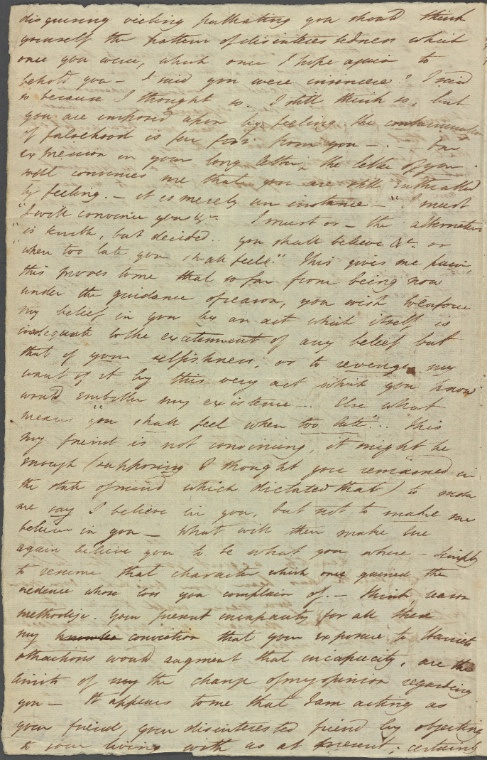 disguising veiling palliating you should think
yourself the pattern of disinterestedness which
once you were, which once I hope again to
behold you – I said you were insincere? I said
so because I thought so. I still think so, but
you are imposed upon by feeling, the
of falsehood is far far from you – .
expression in your long letter, the letter of yr
will convinces me that you are still
by feeling. – it is merely an instance – "I must
"I will convince you &c. I must or – the alternative
"is knuth, but decided. you shall believe &c. or
when too late you shall feel." This gives me pain
this proves to me that so far from being now
under the guidance of reason, you wish to enforce
my belief in you by an act which itself is
inadequate to the excitement of any belief but
that of your selfishness; or to revenge my
want of it by this very act which you know
would embitter my existence... Else what
means "you shall feel when too late". This
my friend is not convincing, it might be
enough (supposing I thought you remained in
the state of mind which dictated that) to make
me say I believe in you, but not to make me
believe in you – What will then make me
again believe you to be what you where – simply
to resume that character which once gained the
credence whose loss you complain of – think reason
methodize. Your present incapacity for all these
my conviction that your exposure to Harriets
attractions would augment that incapacity, are the
limits of my the change of my opinion regarding
you – It appears to me that I am acting as
your friend, your disinterested friend by objecting
to your living with us at present; certainly